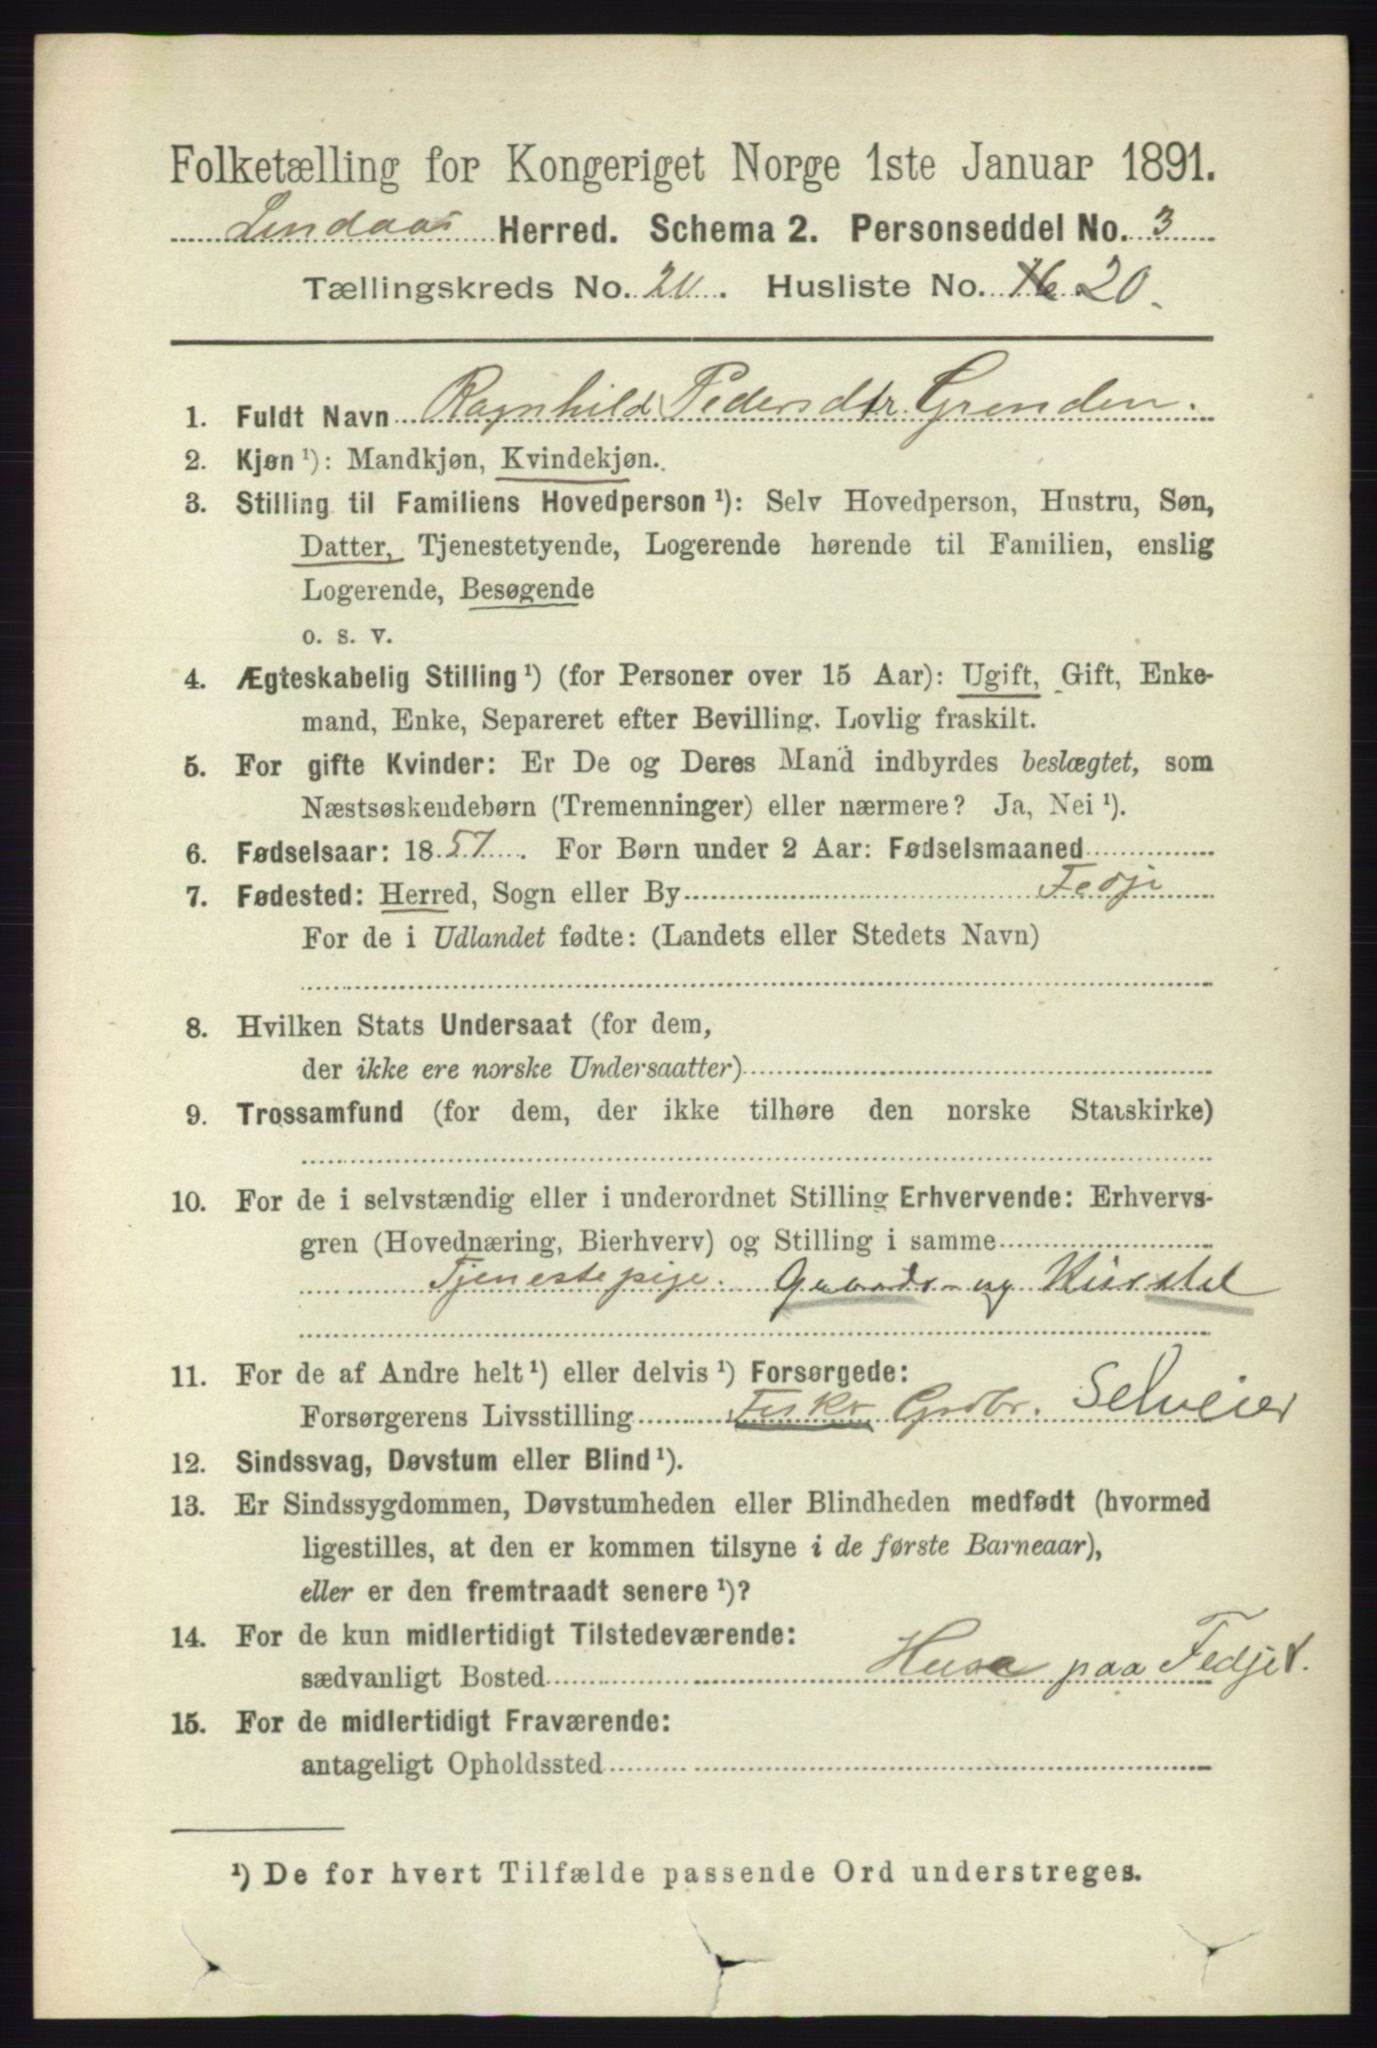 Folketælling for Kongeriget Norge 1ste Januar 1891.
Lindaas Herred. Schema 2. Personseddel No. 3
Tællingskreds No. 20. Husliste No. 16 20.
1. Fuldt Navn Ragnhild Pedersdtr. Grenden.
2. Kjøn ¹): Mandkjøn, Kvindekjøn.
3. Stilling til Familiens Hovedperson ¹): Selv Hovedperson, Hustru, Søn,
Datter, Tjenestetyende, Logerende hørende til Familien, enslig
Logerende, Besøgende
o. s. v.
4. Ægteskabelig Stilling ¹) (for Personer over 15 Aar): Ugift, Gift, Enke-
mand, Enke, Separeret efter Bevilling. Lovlig fraskilt.
5. For gifte Kvinder: Er De og Deres Mand indbyrdes beslægtet, som
Næstsøskendebørn (Tremenninger) eller nærmere? Ja, Nei ¹).
6. Fødselsaar: 1857. For Børn under 2 Aar: Fødselsmaaned
7. Fødested: Herred, Sogn eller By Fedje
For de i Udlandet fødte: (Landets eller Stedets Navn)
8. Hvilken Stats Undersaat (for dem,
der ikke ere norske Undersaatter)
9. Trossamfund (for dem, der ikke tilhøre den norske Statskirke)
10. For de i selvstændig eller i underordnet Stilling Erhvervende: Erhvervs-
gren (Hovednæring, Bierhverv) og Stilling i samme
Tjenestepige. Gaards- og
11. For de af Andre helt ¹) eller delvis ¹) Forsørgede:
Forsørgerens Livsstilling Fisker Grdbr. Selveier
12. Sindssvag, Døvstum eller Blind ¹).
13. Er Sindssygdommen, Døvstumheden eller Blindheden medfødt (hvormed
ligestilles, at den er kommen tilsyne i de første Barneaar),
eller er den fremtraadt senere ¹)?
14. For de kun midlertidigt Tilstedeværende:
sædvanligt Bosted Husa paa Fedje
15. For de midlertidigt Fraværende:
antageligt Opholdssted
¹) De for hvert Tilfælde passende Ord understreges.